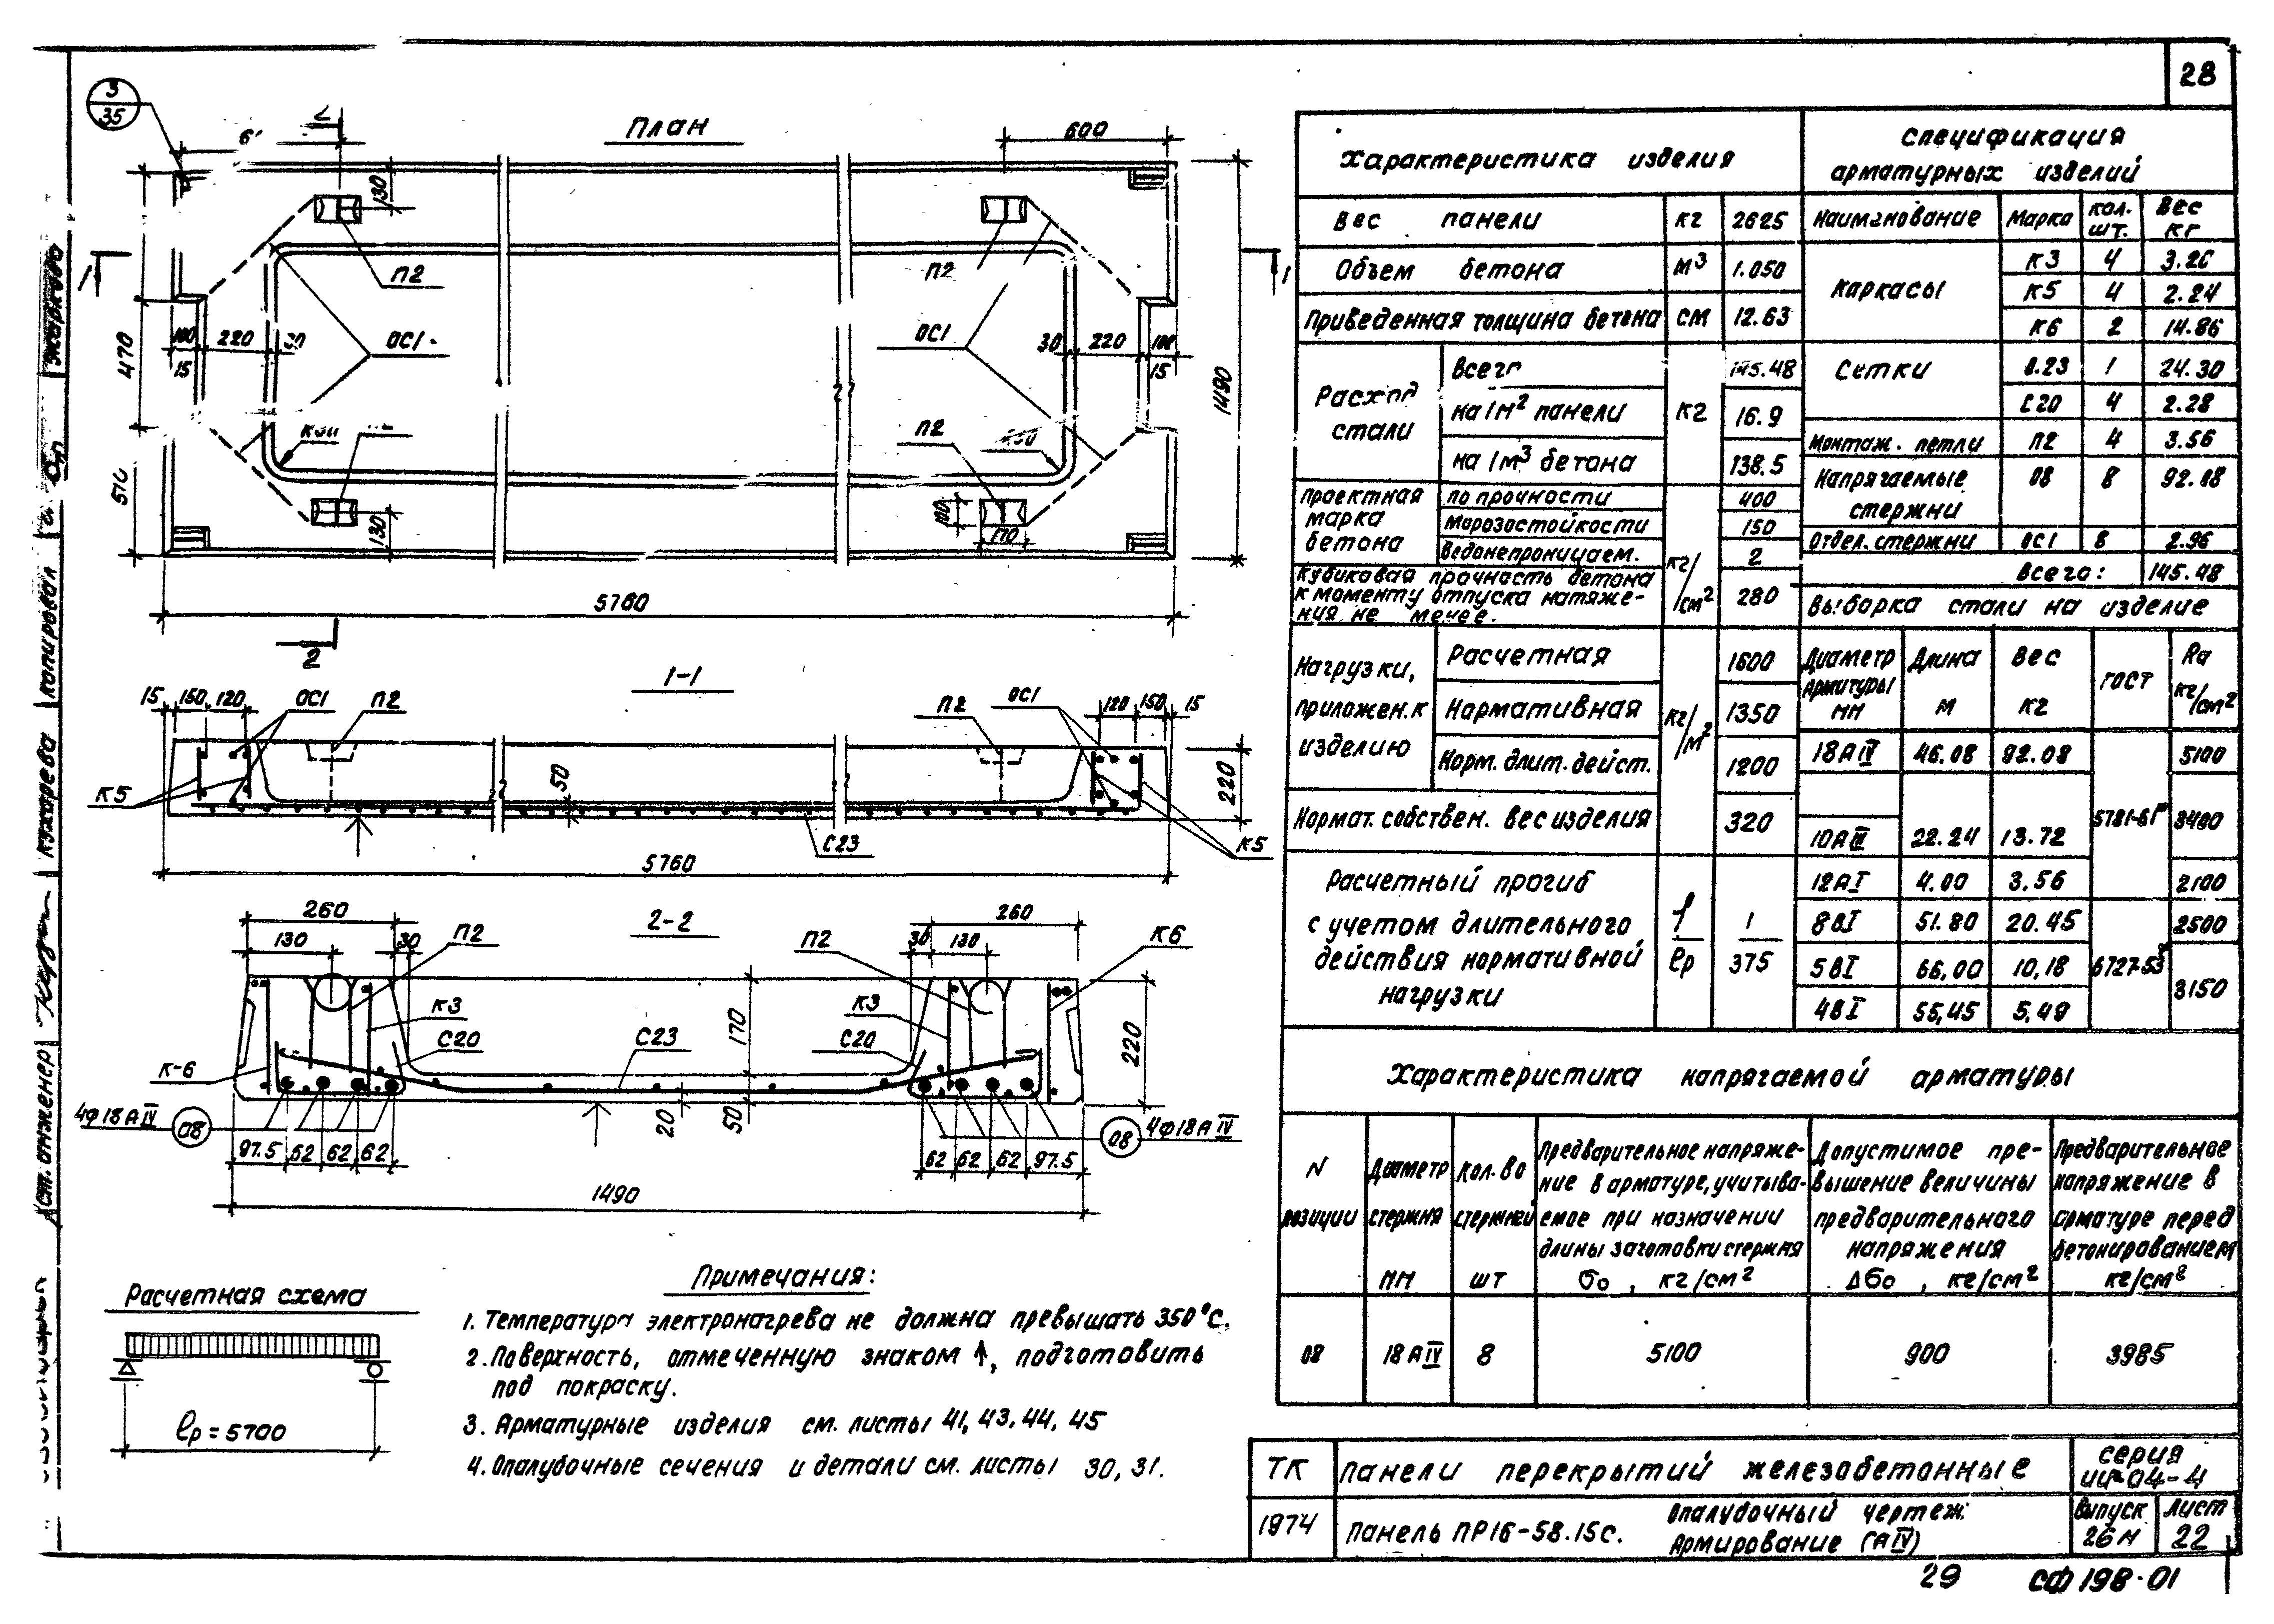 28
3
35
План
600
130
П2
П2
ОС1
ОС1
100
220
30
15
30
220
100
15
470
1490
П2
100
170
130
5760
1
1
2
1-1
15 150 120 ОС1 П2
П2 ОС1 120 150 15
К5
50
220
С23
К5
5760
2-2
260
130
30
П2
П2
260
30 130
К6
К3
С20
С23
К3
С20
170
220
К-6
4ф18АIV
08
20
50
08
4ф18АIV
97.5 62 62 62
62 62 62 97.5
1490
Расчетная схема
ℓр = 5700
Примечания:
1. Температура электронагрева не должна превышать 350°С.
2. Поверхность, отмеченную знаком ↑, подготовить
под покраску.
3. Арматурные изделия см. листы 41, 43, 44, 45
4. Опалубочные сечения и детали см. листы 30, 31.
Характеристика изделия
Вес панели кг 2625
Объем бетона м³ 1.050
Приведенная толщина бетона см 12.63
Расход стали
кг
145.48
на 1м² панели 16.9
на 1м³ бетона 138.5
Проектная марка бетона
по прочности 400
морозостойкости 150
водонепроницаем. 2
кг/см²
Кубиковая прочность бетона
к моменту отпуска натяже-
ния не менее. 280
Нагрузки, приложен. к изделию
Расчетная 1600
Нормативная 1350
Норм. длит. дейст. 1200
кг/м²
Нормат. собствен. вес изделия 320
Расчетный прогиб
с учетом длительного
действия нормативной
нагрузки
f/ℓр
1/375
Спецификация
арматурных изделий
Наименование Марка кол. шт. Вес кг
Каркасы К3 4
К5 4 2.24
К6 2 14.86
Сетки 1 24.30
С20 4 2.28
Монтаж. петли П2 4 3.56
Напрягаемые стержни 08 8 92.08
Отдел. стержни ОС1 8 2.96
Всего: 145.48
Выборка стали на изделие
Диаметр арматуры мм Длина м Вес кг ГОСТ Rа кг/см²
18АIV 46.08 92.08 5100
10АIII 22.24 13.72 3400
12АI 4.00 3.56 2100
8ВI 51.80 20.45 2500
5ВI 66,00 10,18
4ВI 55,45 5,49
3150
Характеристика напрягаемой арматуры
N позиции
Диаметр стержня мм
Кол.во стержней шт
Предварительное напряже-
ние в арматуре, учитыва-
емое при назначении
длины заготовки стержня
σо, кг/см²
Допустимое пре-
вышение величины
предварительного
напряжения
Δσо, кг/см²
Предварительное
напряжение в
арматуре перед
бетонированием
кг/см²
08 18АIV 8 5100 900 3985
ТК Панели перекрытий железобетонные
серия
ИИ-04-4
1974 Панель ПР16-58.15с.
Опалубочный чертеж.
Армирование (АIV)
Выпуск
26м
Лист
22
29 СФ 198-01
Ст. инженер
Кухарева
Копировал